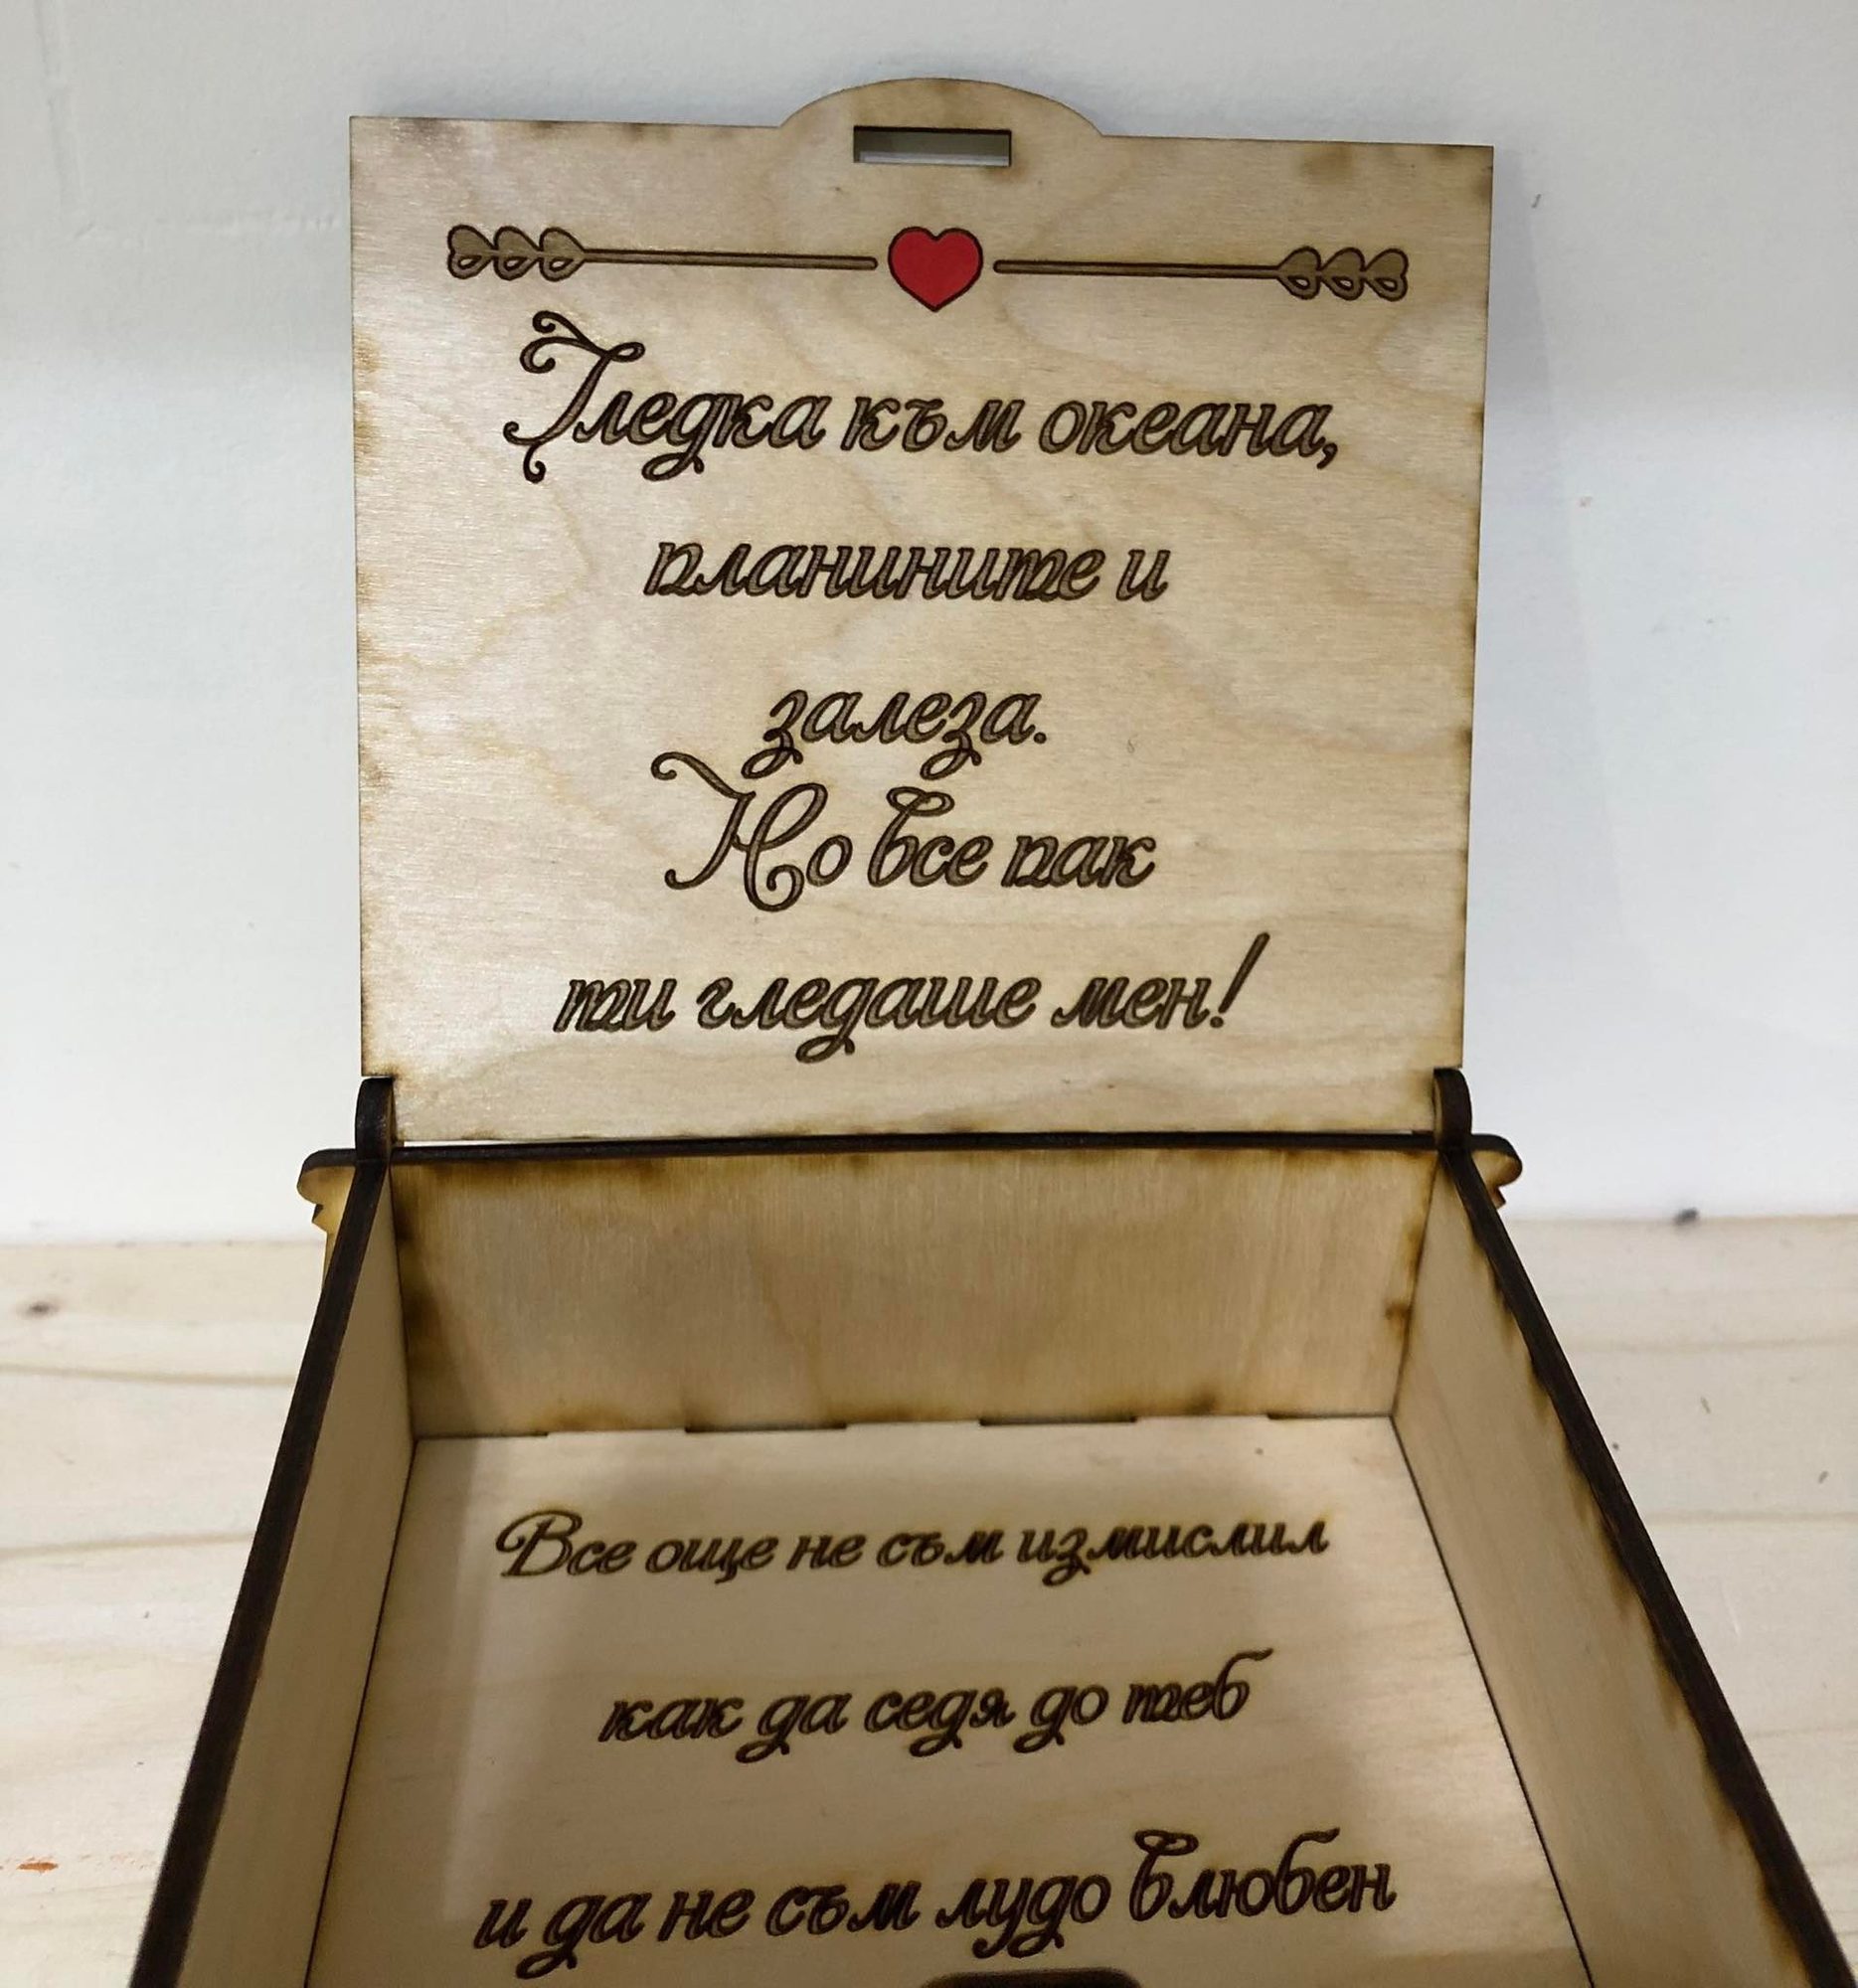 Гледка към океана,
планините и
залеза.
Но все пак
ти гледаше мен!
Все още не съм измислил
как да седя до теб
и да не съм лудо влюбен